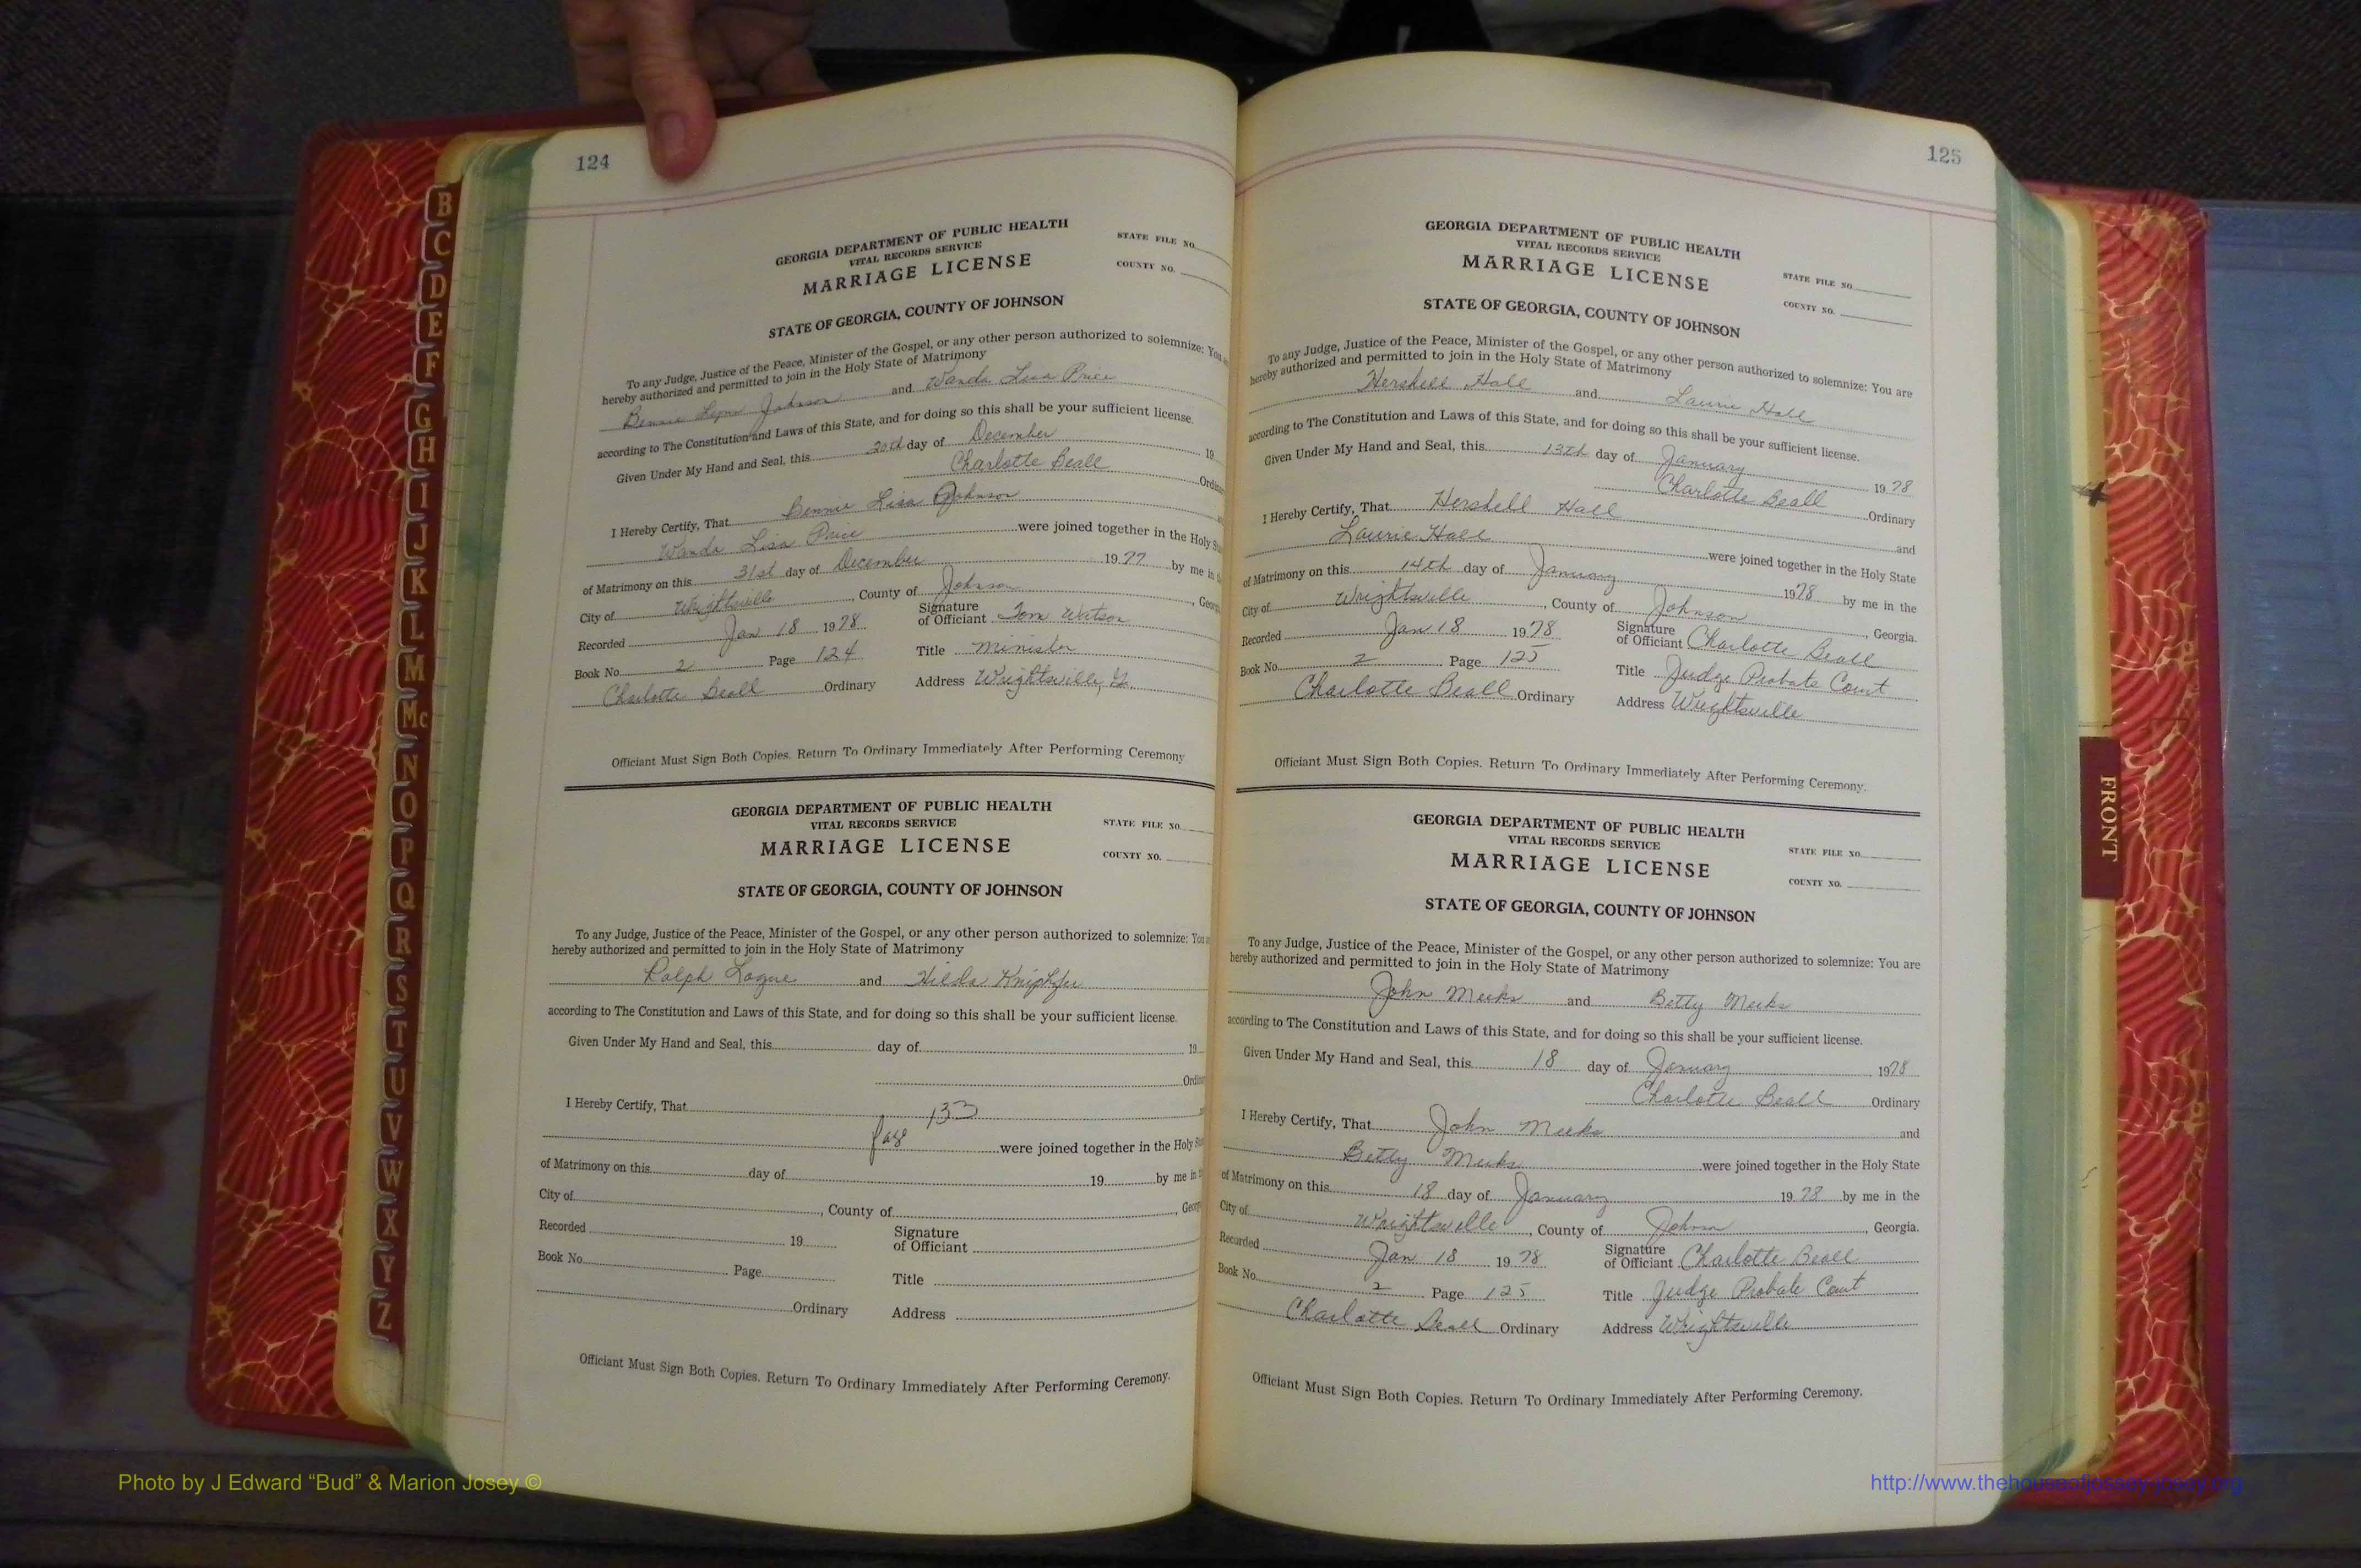 124
GEORGIA DEPARTMENT OF PUBLIC HEALTH
VITAL RECORDS SERVICE
MARRIAGE LICENSE
STATE FILE NO.
COUNTY NO.
STATE OF GEORGIA, COUNTY OF JOHNSON
To any Judge, Justice of the Peace, Minister of the Gospel, or any other person authorized to solemnize: You
hereby authorized and permitted to join in the Holy State of Matrimony
Bennie Johnson and Wanda Lisa Price
according to The Constitution and Laws of this State, and for doing so this shall be your sufficient license.
Given Under My Hand and Seal, this 20th day of December 19
Charlotte Beall
I Hereby Certify, That Bennie Lisa Johnson
Wanda Lisa Price were joined together in the Holy
of Matrimony on this 31st day of December 1977 by me in
City of Wrightsville, County of Johnson
Recorded Jan 18 1978 Signature of Officiant Tom Watson
Book No. 2 Page 124 Title Minister
Charlotte Beall Ordinary Address Wrightsville, Ga.
Officiant Must Sign Both Copies. Return To Ordinary Immediately After Performing Ceremony
GEORGIA DEPARTMENT OF PUBLIC HEALTH
VITAL RECORDS SERVICE
MARRIAGE LICENSE
STATE FILE NO.
COUNTY NO.
STATE OF GEORGIA, COUNTY OF JOHNSON
To any Judge, Justice of the Peace, Minister of the Gospel, or any other person authorized to solemnize: You
hereby authorized and permitted to join in the Holy State of Matrimony
Ralph Logue and Hilda
according to The Constitution and Laws of this State, and for doing so this shall be your sufficient license.
Given Under My Hand and Seal, this day of 19
I Hereby Certify, That 133
were joined together in the Holy
of Matrimony on this day of 19 by me in
City of , County of
Recorded 19 Signature of Officiant
Book No. Page Title
Ordinary Address
Officiant Must Sign Both Copies. Return To Ordinary Immediately After Performing Ceremony.
125
GEORGIA DEPARTMENT OF PUBLIC HEALTH
VITAL RECORDS SERVICE
MARRIAGE LICENSE
STATE FILE NO.
COUNTY NO.
STATE OF GEORGIA, COUNTY OF JOHNSON
To any Judge, Justice of the Peace, Minister of the Gospel, or any other person authorized to solemnize: You are
hereby authorized and permitted to join in the Holy State of Matrimony
Hershell Hall and Laurie Hall
according to The Constitution and Laws of this State, and for doing so this shall be your sufficient license.
Given Under My Hand and Seal, this 13th day of January 1978
Charlotte Beall Ordinary
I Hereby Certify, That Hershell Hall and
Laurie Hall were joined together in the Holy State
of Matrimony on this 14th day of January 1978 by me in the
City of Wrightsville, County of Johnson, Georgia.
Recorded Jan 18 1978 Signature of Officiant Charlotte Beall
Book No. 2 Page 125 Title Judge Probate Court
Charlotte Beall Ordinary Address Wrightsville
Officiant Must Sign Both Copies. Return To Ordinary Immediately After Performing Ceremony.
GEORGIA DEPARTMENT OF PUBLIC HEALTH
VITAL RECORDS SERVICE
MARRIAGE LICENSE
STATE FILE NO.
COUNTY NO.
STATE OF GEORGIA, COUNTY OF JOHNSON
To any Judge, Justice of the Peace, Minister of the Gospel, or any other person authorized to solemnize: You are
hereby authorized and permitted to join in the Holy State of Matrimony
John Meeks and Betty Meeks
according to The Constitution and Laws of this State, and for doing so this shall be your sufficient license.
Given Under My Hand and Seal, this 18 day of January 1978
Charlotte Beall Ordinary
I Hereby Certify, That John Meeks and
Betty Meeks were joined together in the Holy State
of Matrimony on this 18 day of January 1978 by me in the
City of Wrightsville, County of Johnson, Georgia.
Recorded Jan 18 1978 Signature of Officiant Charlotte Beall
Book No. 2 Page 125 Title Judge Probate Court
Charlotte Beall Ordinary Address Wrightsville
Officiant Must Sign Both Copies. Return To Ordinary Immediately After Performing Ceremony.
B
C
D
E
F
G
H
I
J
K
L
M
Mc
N
O
P
Q
R
S
T
U
V
W
X
Y
Z
FRONT
Photo by J Edward “Bud” & Marion Josey ©
http://www.thehouseofjossey-josey.org